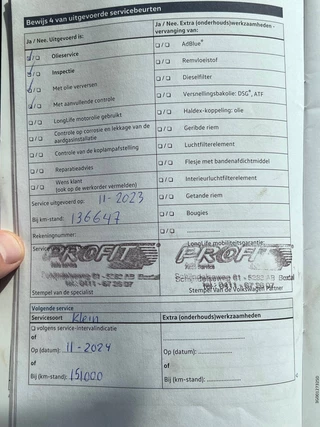 Bewijs 4 van uitgevoerde servicebeurten
Ja / Nee. Uitgevoerd is:
Ja / Nee. Extra (onderhouds)werkzaamheden - vervanging van:
Olieservice
Inspectie
Met olie verversen
Met aanvullende controle
LongLife motorolie gebruikt
Controle op corrosie en lekkage van de
aardgasinstallatie
Controle van de koplampafstelling
Reparatieadvies
Wens klant
(ook op de werkorder vermelden)
AdBlue®
Remvloeistof
Dieselfilter
Versnellingsbakolie: DSG®, ATF
Haldex-koppeling: olie
Geribde riem
Luchtfilterelement
Flesje met bandenafdichtmiddel
Interieurluchtfilterelement
Getande riem
Bougies
Service uitgevoerd op: 11-2023
Bij km-stand: 136647
Rekeningnummer:
LongLife mobiliteitsgarantie
PROFIT
PROFIT
Stempel van de specialist
Stempel van de Volkswagen Partner
Volgende service
Servicesoort Klein
Extra (onderhouds)werkzaamheden
volgens service-intervalindicatie
of
Op (datum): 11-2024
of
Bij (km-stand): 151000
Op (datum):
of
Bij (km-stand):